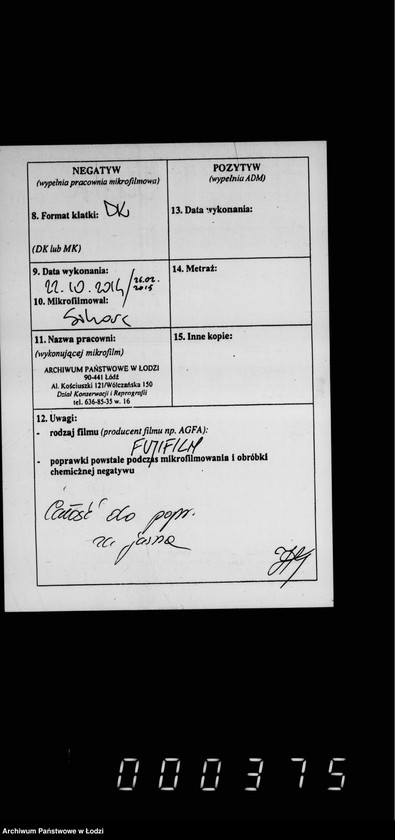 NEGATYW
(wypełnia pracownia mikrofilmowa)
8. Format klatki: DK
(DK lub MK)
9. Data wykonania:
22.10.2014/26.02.2015
10. Mikrofilmował:
11. Nazwa pracowni:
(wykonującej mikrofilm)
ARCHIWUM PAŃSTWOWE W ŁODZI
90-441 Łódź
Al. Kościuszki 121/Wólczańska 150
Dział Konserwacji i Reprografii
tel. 636-85-35 w. 16
POZYTYW
(wypełnia ADM)
13. Data wykonania:
14. Metraż:
15. Inne kopie:
12. Uwagi:
- rodzaj filmu (producent filmu np. AGFA):
FUJIFILM
- poprawki powstałe podczas mikrofilmowania i obróbki
chemicznej negatywu
Całość do popr.
za jasna
000375
Archiwum Państwowe w Łodzi